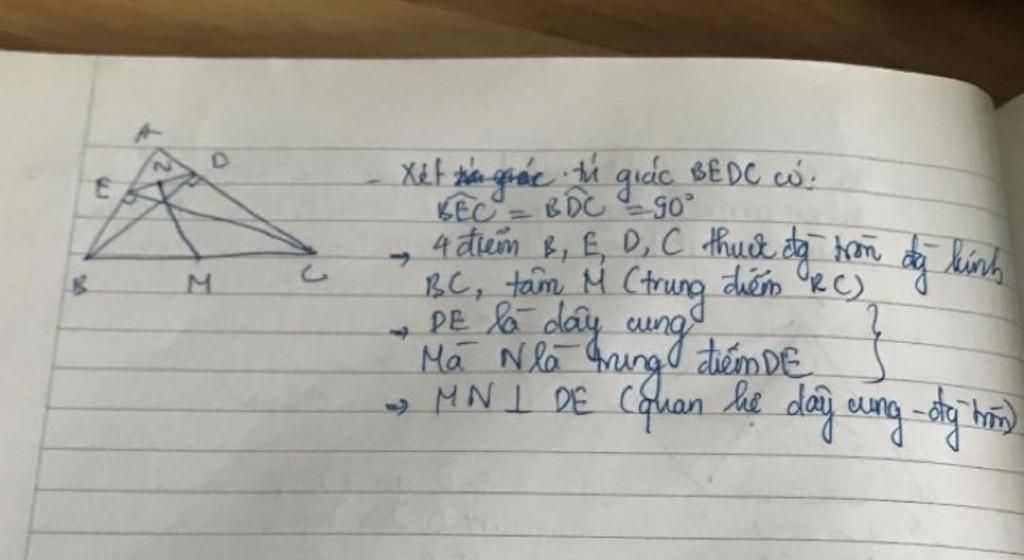 A
N
D
E
B
M
C
- Xét tứ giác BEDC có:
BEC = BDC = 90°
→ 4 điểm B, E, D, C thuộc đg tròn đg kính
BC, tâm M (trung điểm BC)
→ DE là dây cung
Mà N là trung điểm DE
→ MN ⊥ DE (quan hệ dây cung - đg tròn)